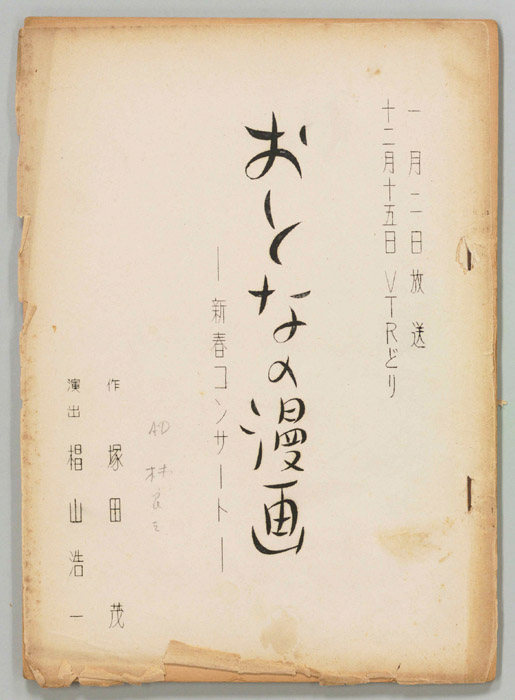 一月二日放送
十二月十五日VTRどり
おとなの漫画
―新春コンサート―
AD 林
作 塚田茂
演出 椙山浩一